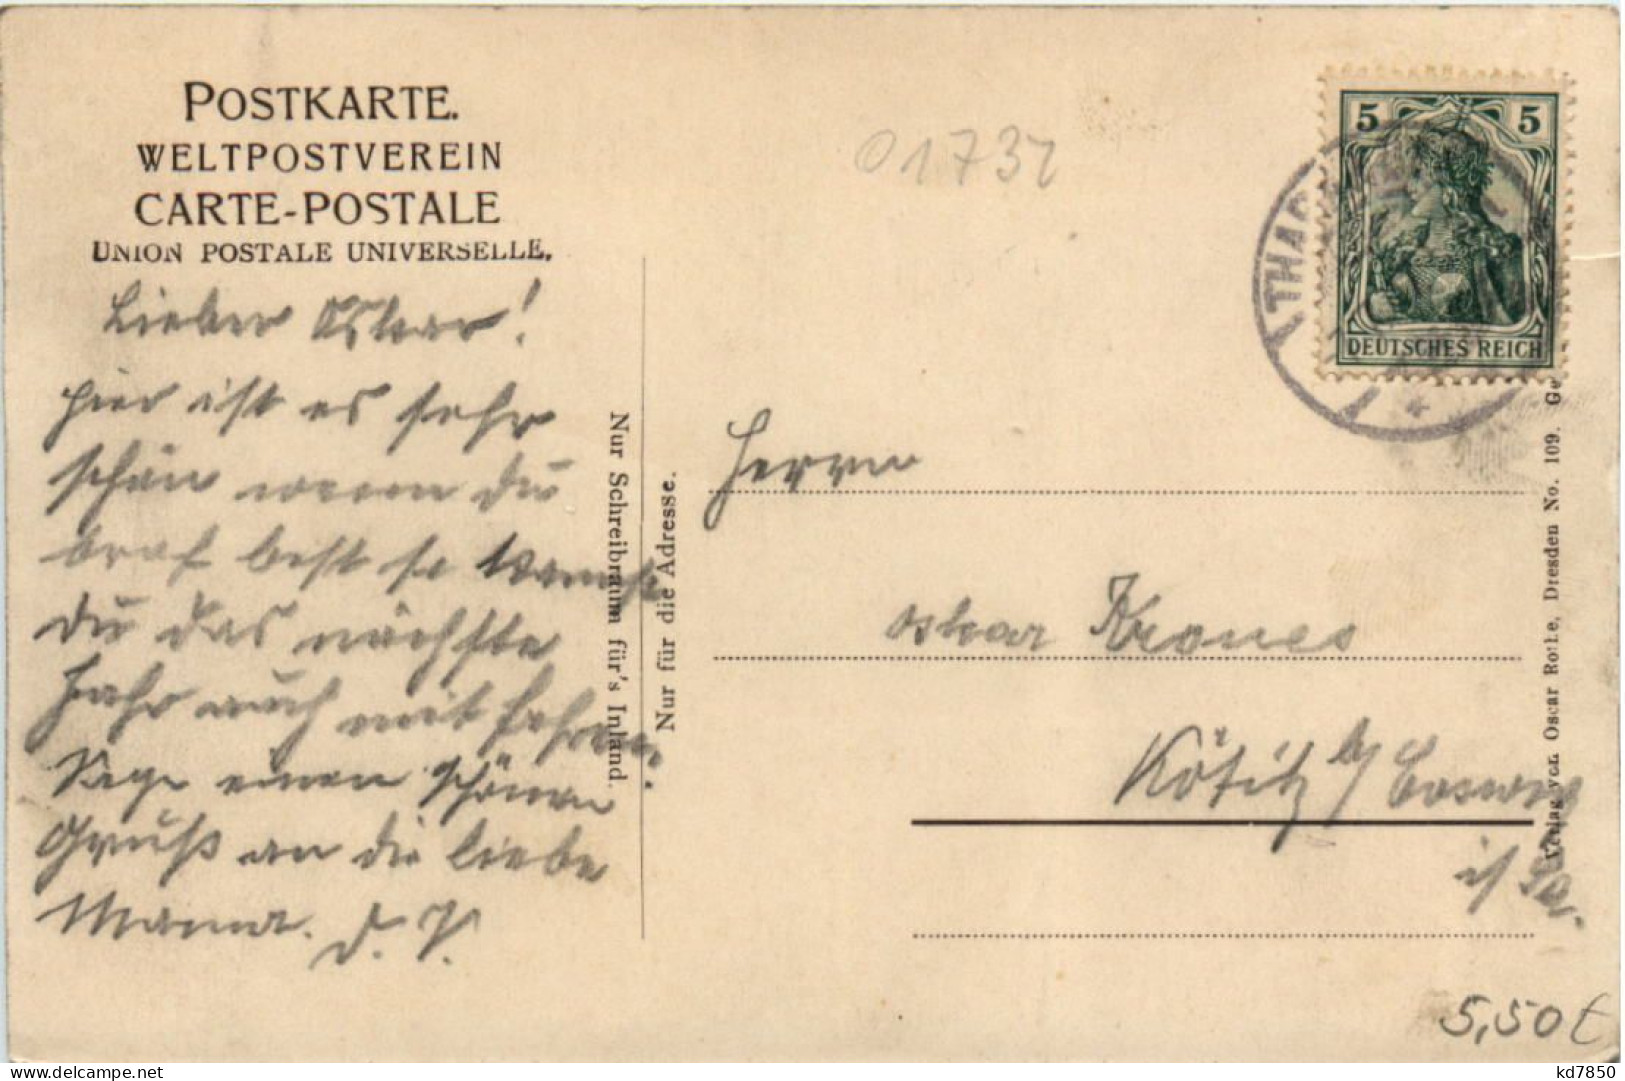 POSTKARTE.
WELTPOSTVEREIN
CARTE-POSTALE
UNION POSTALE UNIVERSELLE.
Lieber Oskar!
hier ist es sehr
schön wenn du
braf best so kannst
du das nächste
Jahr auch mit fahren.
Sage einen schönen
Gruß an die liebe
Mama. D. V.
Nur Schreibraum für's Inland.
Nur für die Adresse.
01732
5 5
DEUTSCHES REICH
THA
Herrn
Oskar Krones
Kötitz b/ Coswig
i/ Sa.
Verlag von Oscar Rothe, Dresden No. 109.
5,50€
kd7850